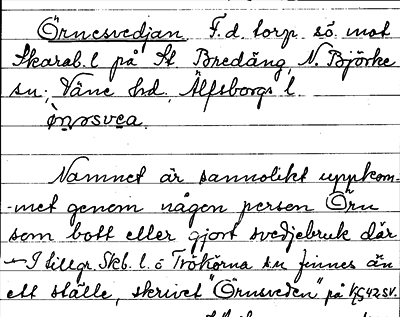 Örnesvedjan. F.d. torp sö. mot
Skarab. l på St Bredäng, N. Björke
sn; Väne hd, Älfsborgs l.
Namnet är sannolikt uppkom-
-met genom någon person Örn
som bott eller gjort svedjebruk där
– I tillgr. Skb. l. o Trökörna sn finnes än
ett ställe, skrivet "Örnsveden" på KG42SV.